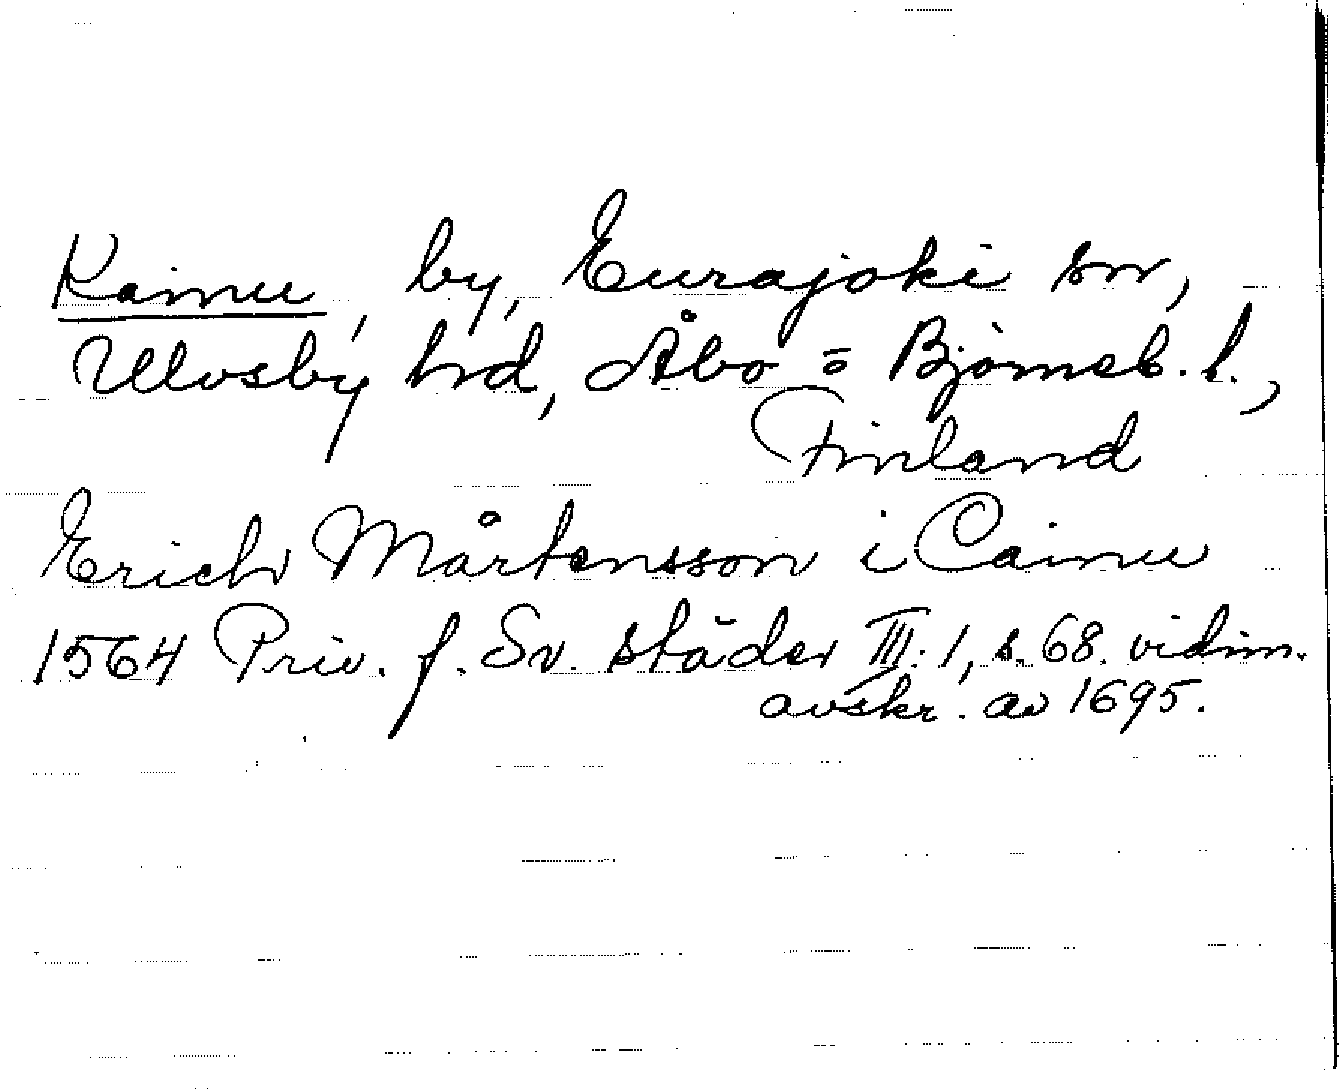 Kainu, by, Eurajoki sn,
Ulvsby hrd, Åbo = Björneb. l.,
Finland
Erich Mårtensson i Cainu
1564 Priv. f. Sv. städer III:1, s. 68. vidim.
avskr. av 1695.